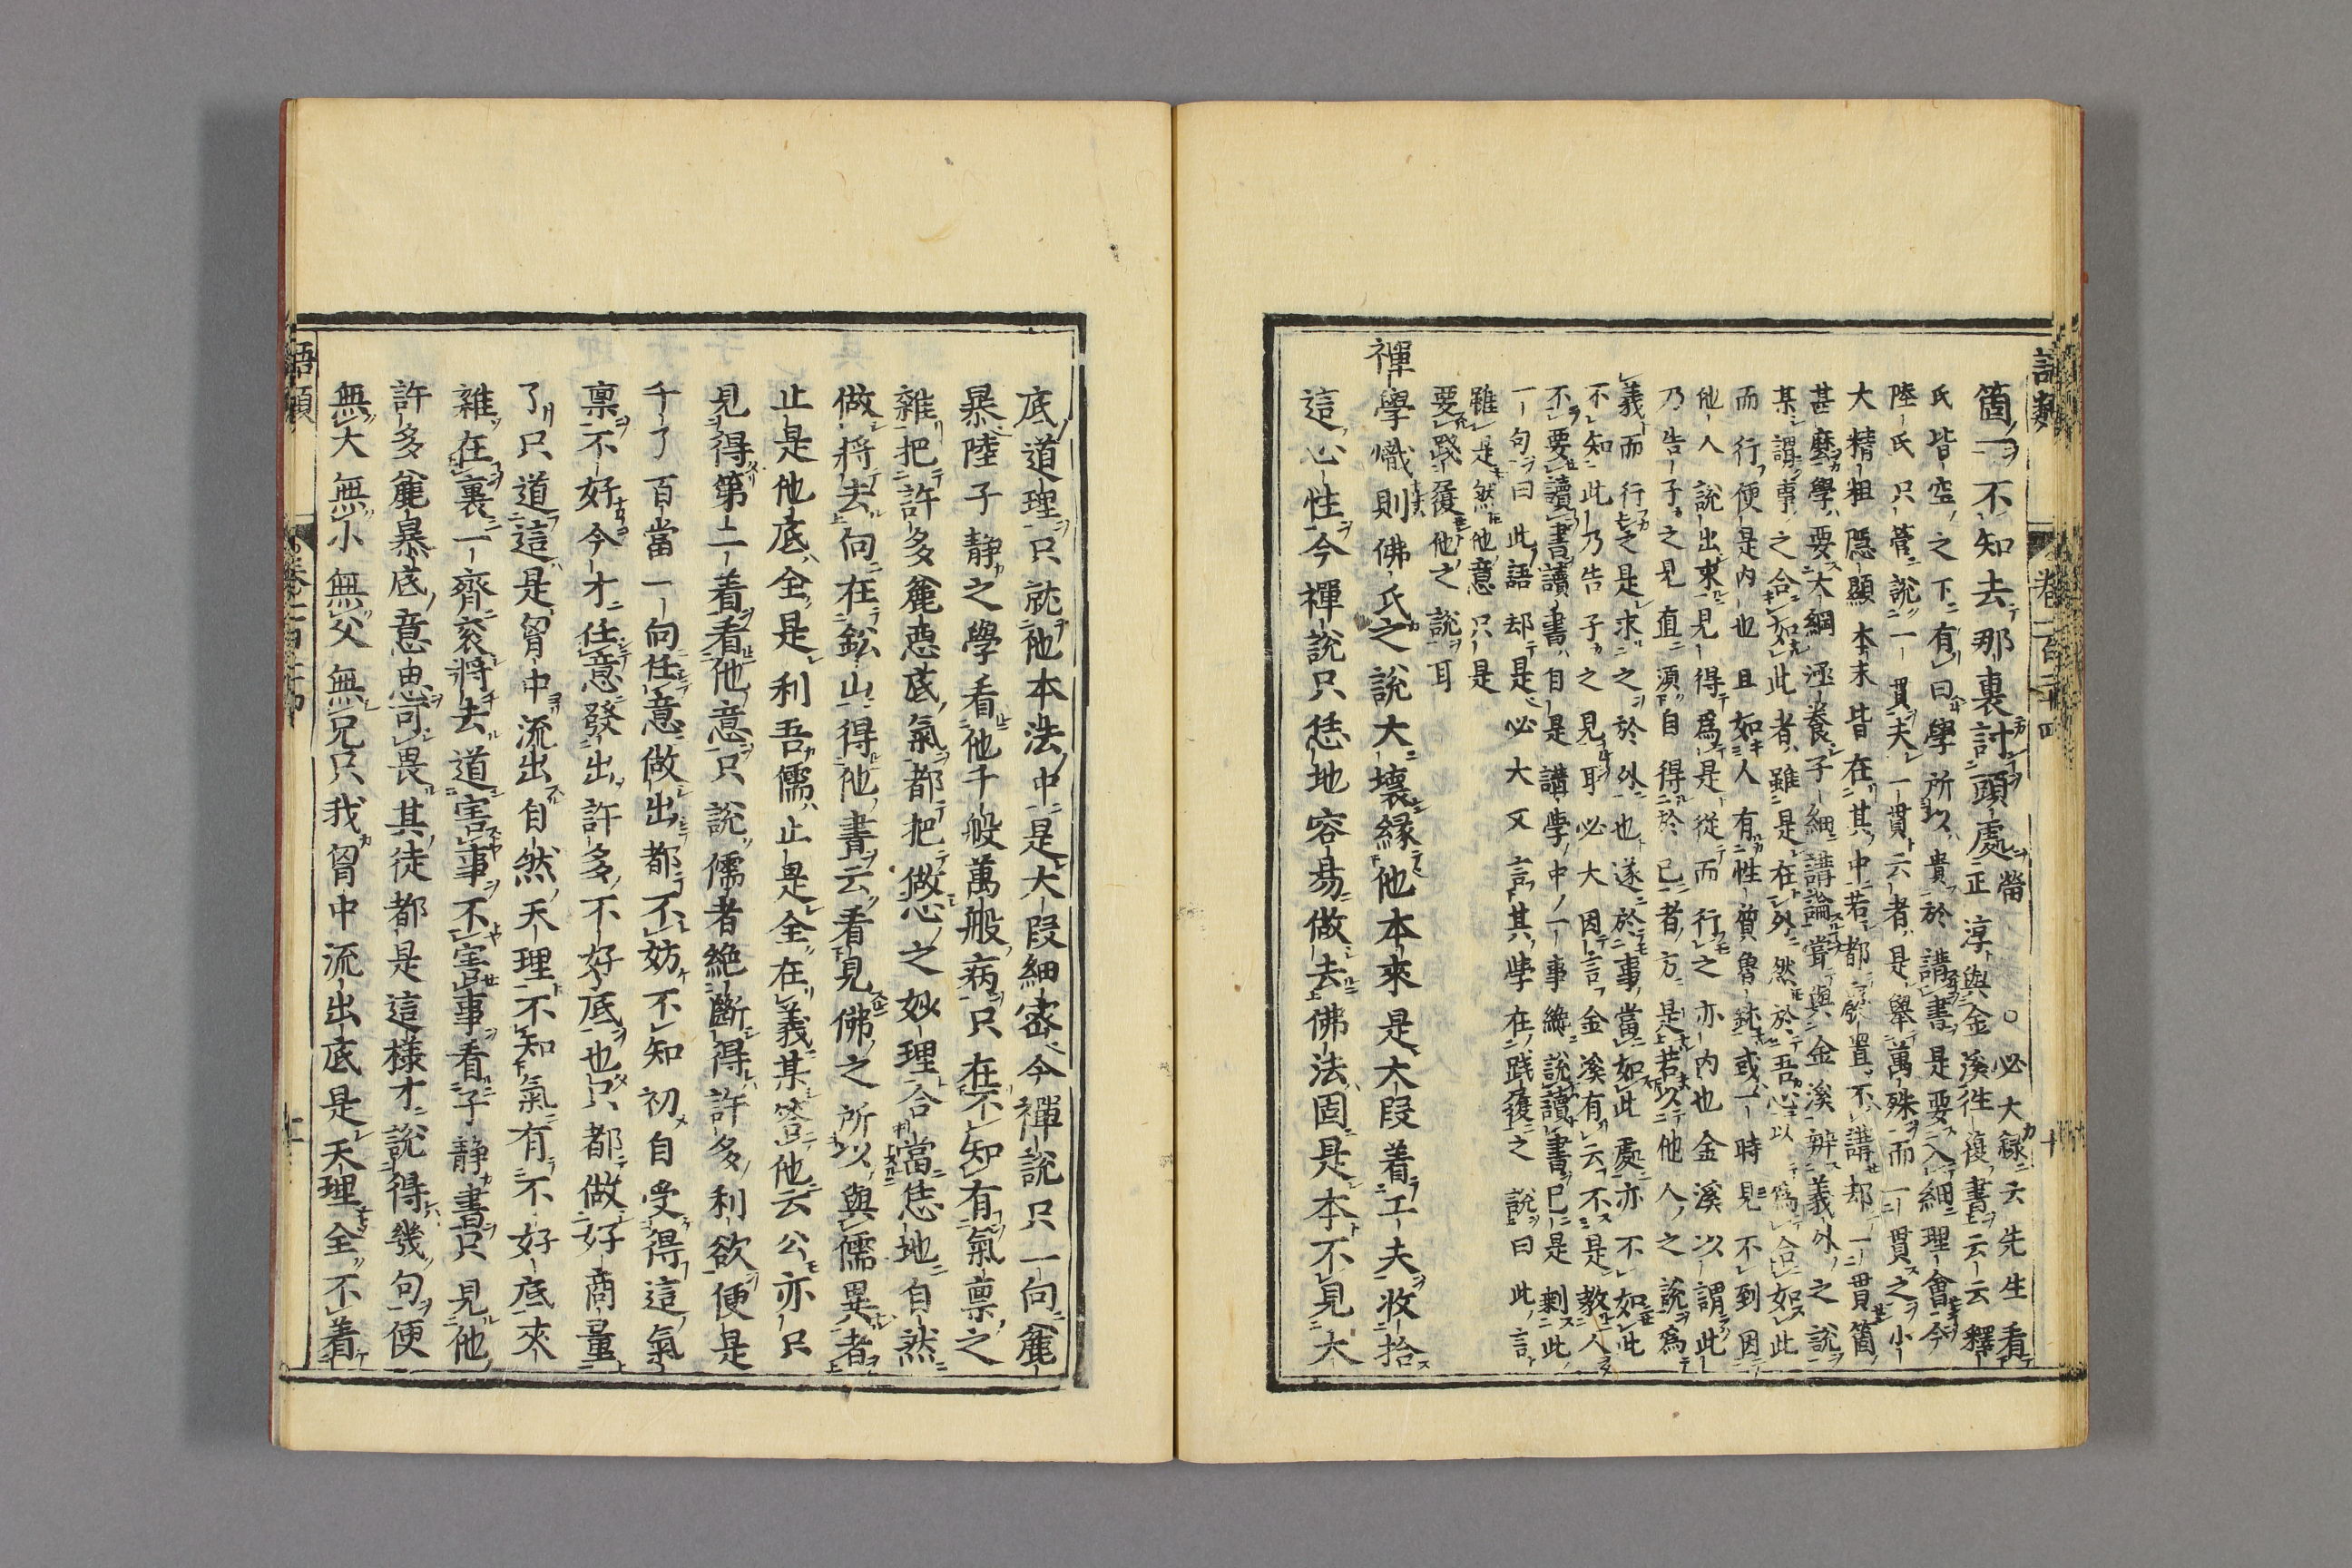 語類 卷一百二十四 十
箇一不知去那裏討頭處𤲟 ○必大錄云先生看
正淳與金溪往復書云云釋
氏皆空之下有曰學所以貴於講書是要入細理會今
陸氏只管說一貫夫一貫云者是舉萬殊而一貫之小
大精粗隱顯本末皆在其中若都置不講却一貫箇
甚麽學要大綱涵養子細講論嘗與金溪辨義外之說
某謂事之合如此者雖是在外然於吾心以爲合如此
而行便是内也且如人有性質魯鈍或一時見不到因
他人說出來見得爲是從而行之亦内也金溪以謂此
乃告子之見直須自得於己者方是若以他人之說爲
義而行之是求之於外也遂於事當如此處亦不如此
不知此乃告子之見耳必大因言金溪有云不是教人
不要讀書讀書自是講學中一事纔說讀書已是剩此
一句曰此語却是必大又言其學在踐履之說曰此言
雖是然他意只是
要踐履他之說耳
禪學熾則佛氏之說大壞縁他本來是大段着工夫收拾
這心性今禪說只恁地容易做去佛法固是本不見大
底道理只就他本法中是大段細密今禪說只一向麄
暴陸子静之學看他千般萬般病只在不知有氣禀之
雜把許多麄惡底氣都把做心之妙理合當恁地自然
做將去向在鉛山得他書云看見佛之所以與儒異者
止是他底全是利吾儒止是全在義某答他云公亦只
見得第二着看他意只說儒者絶斷得許多利欲便是
千了百當一向任意做出都不妨不知初自受得這氣
禀不好今才任意發出許多不好底也只都做好商量
了只道這是胷中流出自然天理不知氣有不好底夾
雜在裏一齊衮將去道害事不害事看子静書只見他
許多麄暴底意思可畏其徒都是這樣才說得幾句便
無大無小無父無兄只我胷中流出底是天理全不着
語類